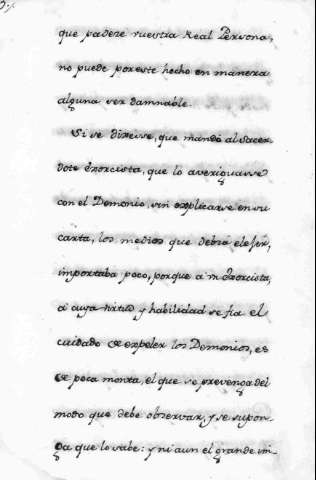 que padeze vuestra Real Persona,
no puede por este hecho en manera
alguna ser damnable.
Si se dixesse, que mandò al Sacer-
dote Exorcista, que lo averiguasse
con el Demonio, sin explicarse en su
carta, los medios que debia elejir,
importaba poco, porque a un Exorcista,
a cuya virtud y habilidad se fia el
cuidado de expeler los Demonios, es
de poca monta, el que se prevenga del
modo que debe observar, y se supon-
ga que lo sabe: y ni aun el grande in-